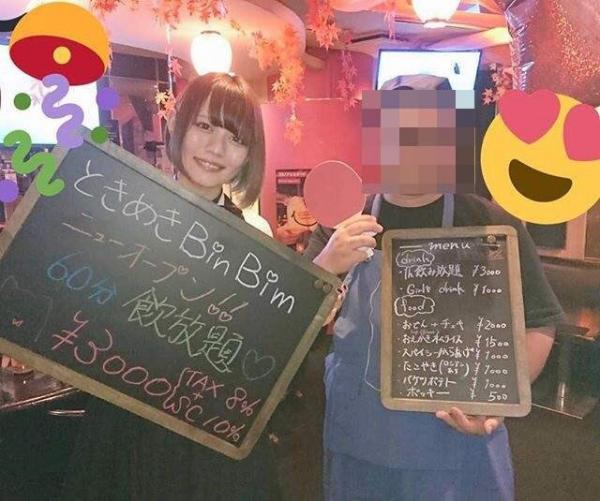 ときめきBinBim
ニューオープン!!
60分 飲放題♡
¥3000 TAX 8%
+
SC 10%
menu
drink
・1h飲み放題 ¥3000
・Girls drink ¥1000
food
おでん+チェキ ¥2000
おえかきオムライス ¥1500
スパイシーから揚げ ¥1000
たこやき ¥1000
バケツポテト ¥1000
ポッキー ¥500